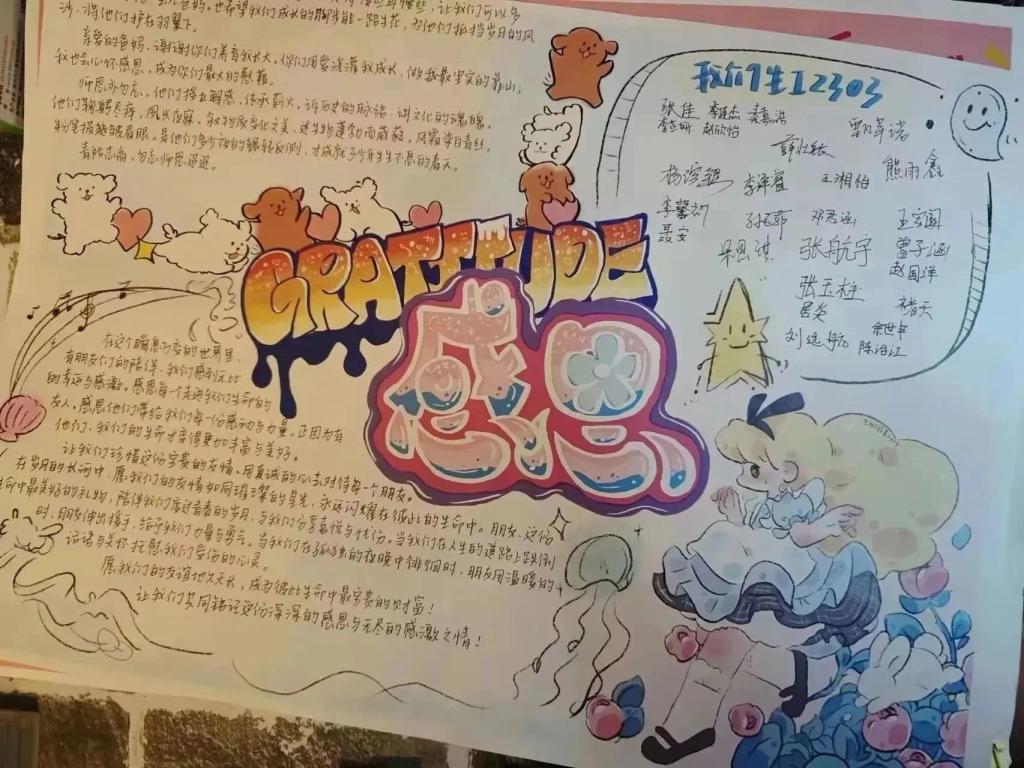 让我们可以多
爸妈。也希望我们成长的脚步能一路生花，为他们抵挡岁月的风
沙，将他们护在羽翼下。
亲爱的爸妈，谢谢你们养育我长大。你们用爱浇灌我成长，做我最坚实的靠山；
我也会心怀感恩，成为你们最大的慰藉。
师恩亦勿忘。他们授业解惑，传承薪火。诉历史的脉络，讲文化的魂魄。
他们鞠躬尽瘁，风火
粉笔描摹皱眉眼。是他们多少夜的辗转反侧，才成就了少年生生不息的春天。
青衿志高，勿忘师恩迢迢。
GRATITUDE
感恩
在这个瞬息万变的世界里，
有朋友们的陪伴，我们感到无比
的幸运与感激。感恩每一个走进我们生命的
友人，感恩他们带给我们每一份感动与力量。正因为有
他们，我们的生命才显得更加丰富与美好。
让我们珍惜这份宝贵的友情，用真诚的心去对待每一个朋友。
在岁月的长河中，愿我们的友情如同璀璨的星光，永远闪耀在彼此的生命中。朋友，这份
生命中最美好的礼物，陪伴我们度过青春的岁月，与我们分享喜悦与忧伤。当我们在人生的道路上跌倒
时，朋友伸出援手，给予我们力量与勇气。当我们在孤独的夜晚中徘徊时，朋友用温暖的
话语与关怀抚慰我们受伤的心灵。
愿我们的友谊地久天长，成为彼此生命中最宝贵的财富！
让我们共同铭记这份深深的感恩与无尽的感激之情！
我们生工2303
张佳 李廷杰
赵欣怡
王湘怡 熊雨鑫
李馨
聂安 邓君涵 王安国
张航宇 曾子涵
赵国洋
张玉柱
刘远航 陈浩江